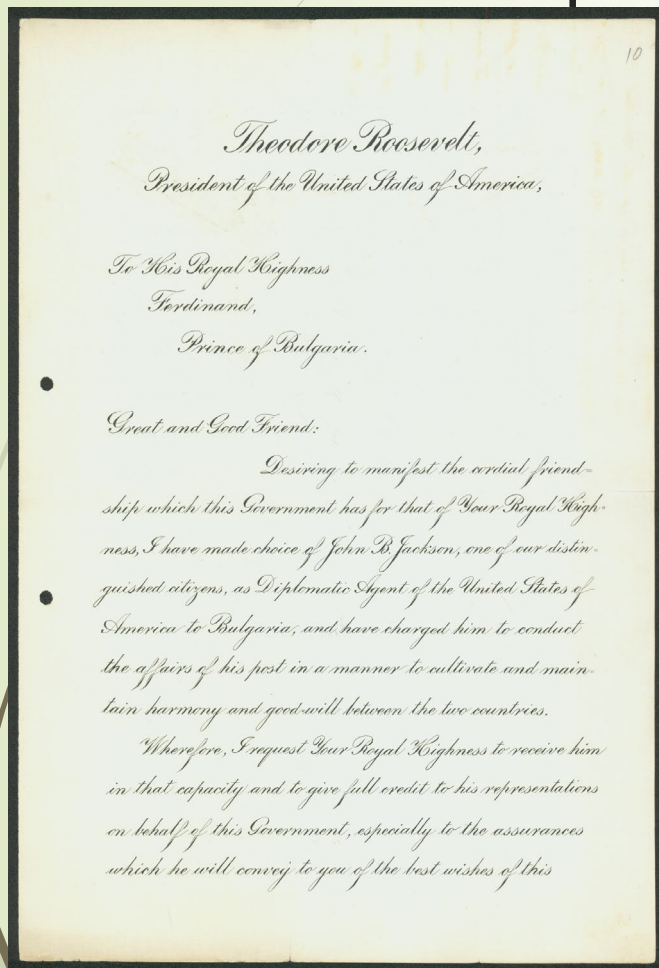 10
Theodore Roosevelt,
President of the United States of America,
To His Royal Highness
Ferdinand,
Prince of Bulgaria.
Great and Good Friend:
Desiring to manifest the cordial friend=
ship which this Government has for that of Your Royal High-
ness, I have made choice of John B. Jackson, one of our distin-
guished citizens, as Diplomatic Agent of the United States of
America to Bulgaria; and have charged him to conduct
the affairs of his post in a manner to cultivate and main-
tain harmony and good-will between the two countries.
Wherefore, I request Your Royal Highness to receive him
in that capacity and to give full credit to his representations
on behalf of this Government, especially to the assurances
which he will convey to you of the best wishes of this